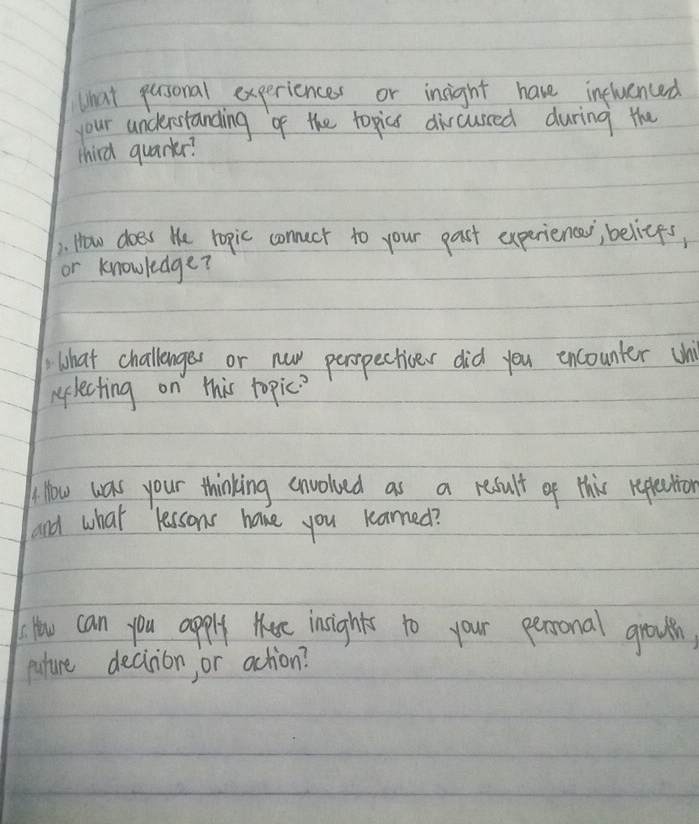 1. What personal experiences or insight have influenced
your understanding of the topics discussed during the
third quarter?
2. How does the topic connect to your past experiences, beliefs,
or knowledge?
3. What challenges or new perspectives did you encounter whi
reflecting on this topic?
4. How was your thinking envolved as a result of this reflection
and what lessons have you learned?
5. How can you apply these insights to your personal growth,
future decision, or action?